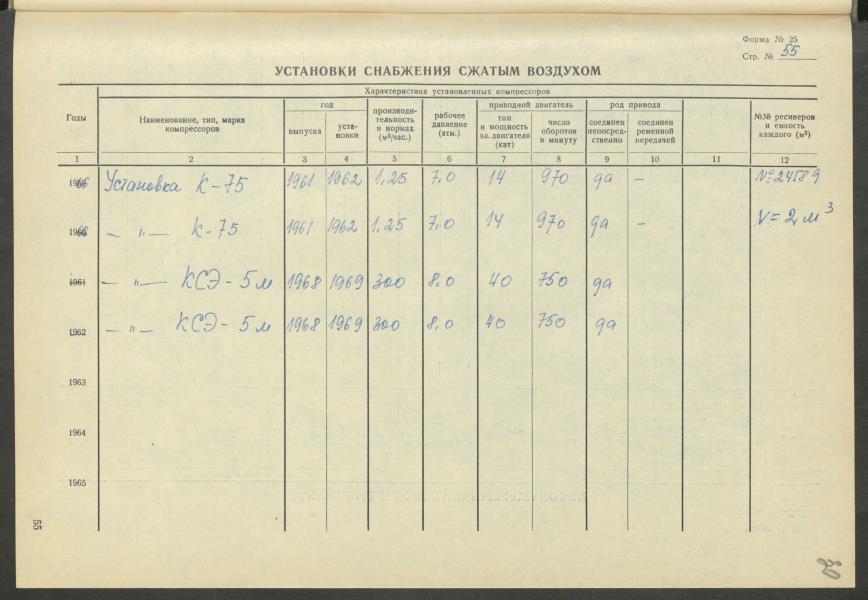 Форма № 25
Стр. № 55
УСТАНОВКИ СНАБЖЕНИЯ СЖАТЫМ ВОЗДУХОМ
Годы
Характеристика установленных компрессоров
Наименование, тип, марка компрессоров
год
выпуска
уста-
новки
производи-
тельность
в нормах
(м³/час.)
рабочее
давление
(атм.)
приводной двигатель
тип
и мощность
эл. двигателя
(квт)
число
оборотов
в минуту
род привода
соединен
непосред-
ственно
соединен
ременной
передачей
№№ ресиверов
и емкость
каждого (м³)
1 2 3 4 5 6 7 8 9 10 11 12
Установка К-75 1961 1962 1,25 7,0 14 970 да — № 24589
— " — К-75 1961 1962 1,25 7,0 14 970 да — V = 2 м³
1961 — " — КСЭ-5м 1968 1969 300 8,0 40 750 да
1962 — " — КСЭ-5м 1968 1969 300 8,0 40 750 да
1963
1964
1965
55